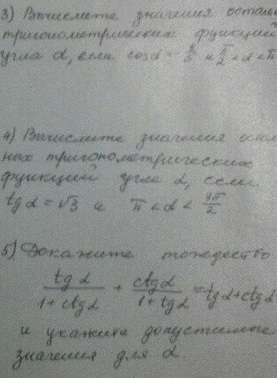 3) Вычислите значения осталь
тригонометрических функций
угла α, если cosα = и π/2 < α < π
4) Вычислите значения осталь
ных тригонометрических
функций угла α, если
tgα = √3 и π < α < 3π/2
5) Докажите тождество
tgα/(1 + ctgα) + ctgα/(1 + tgα) = tgα + ctgα
и укажите допустимые
значения для α.